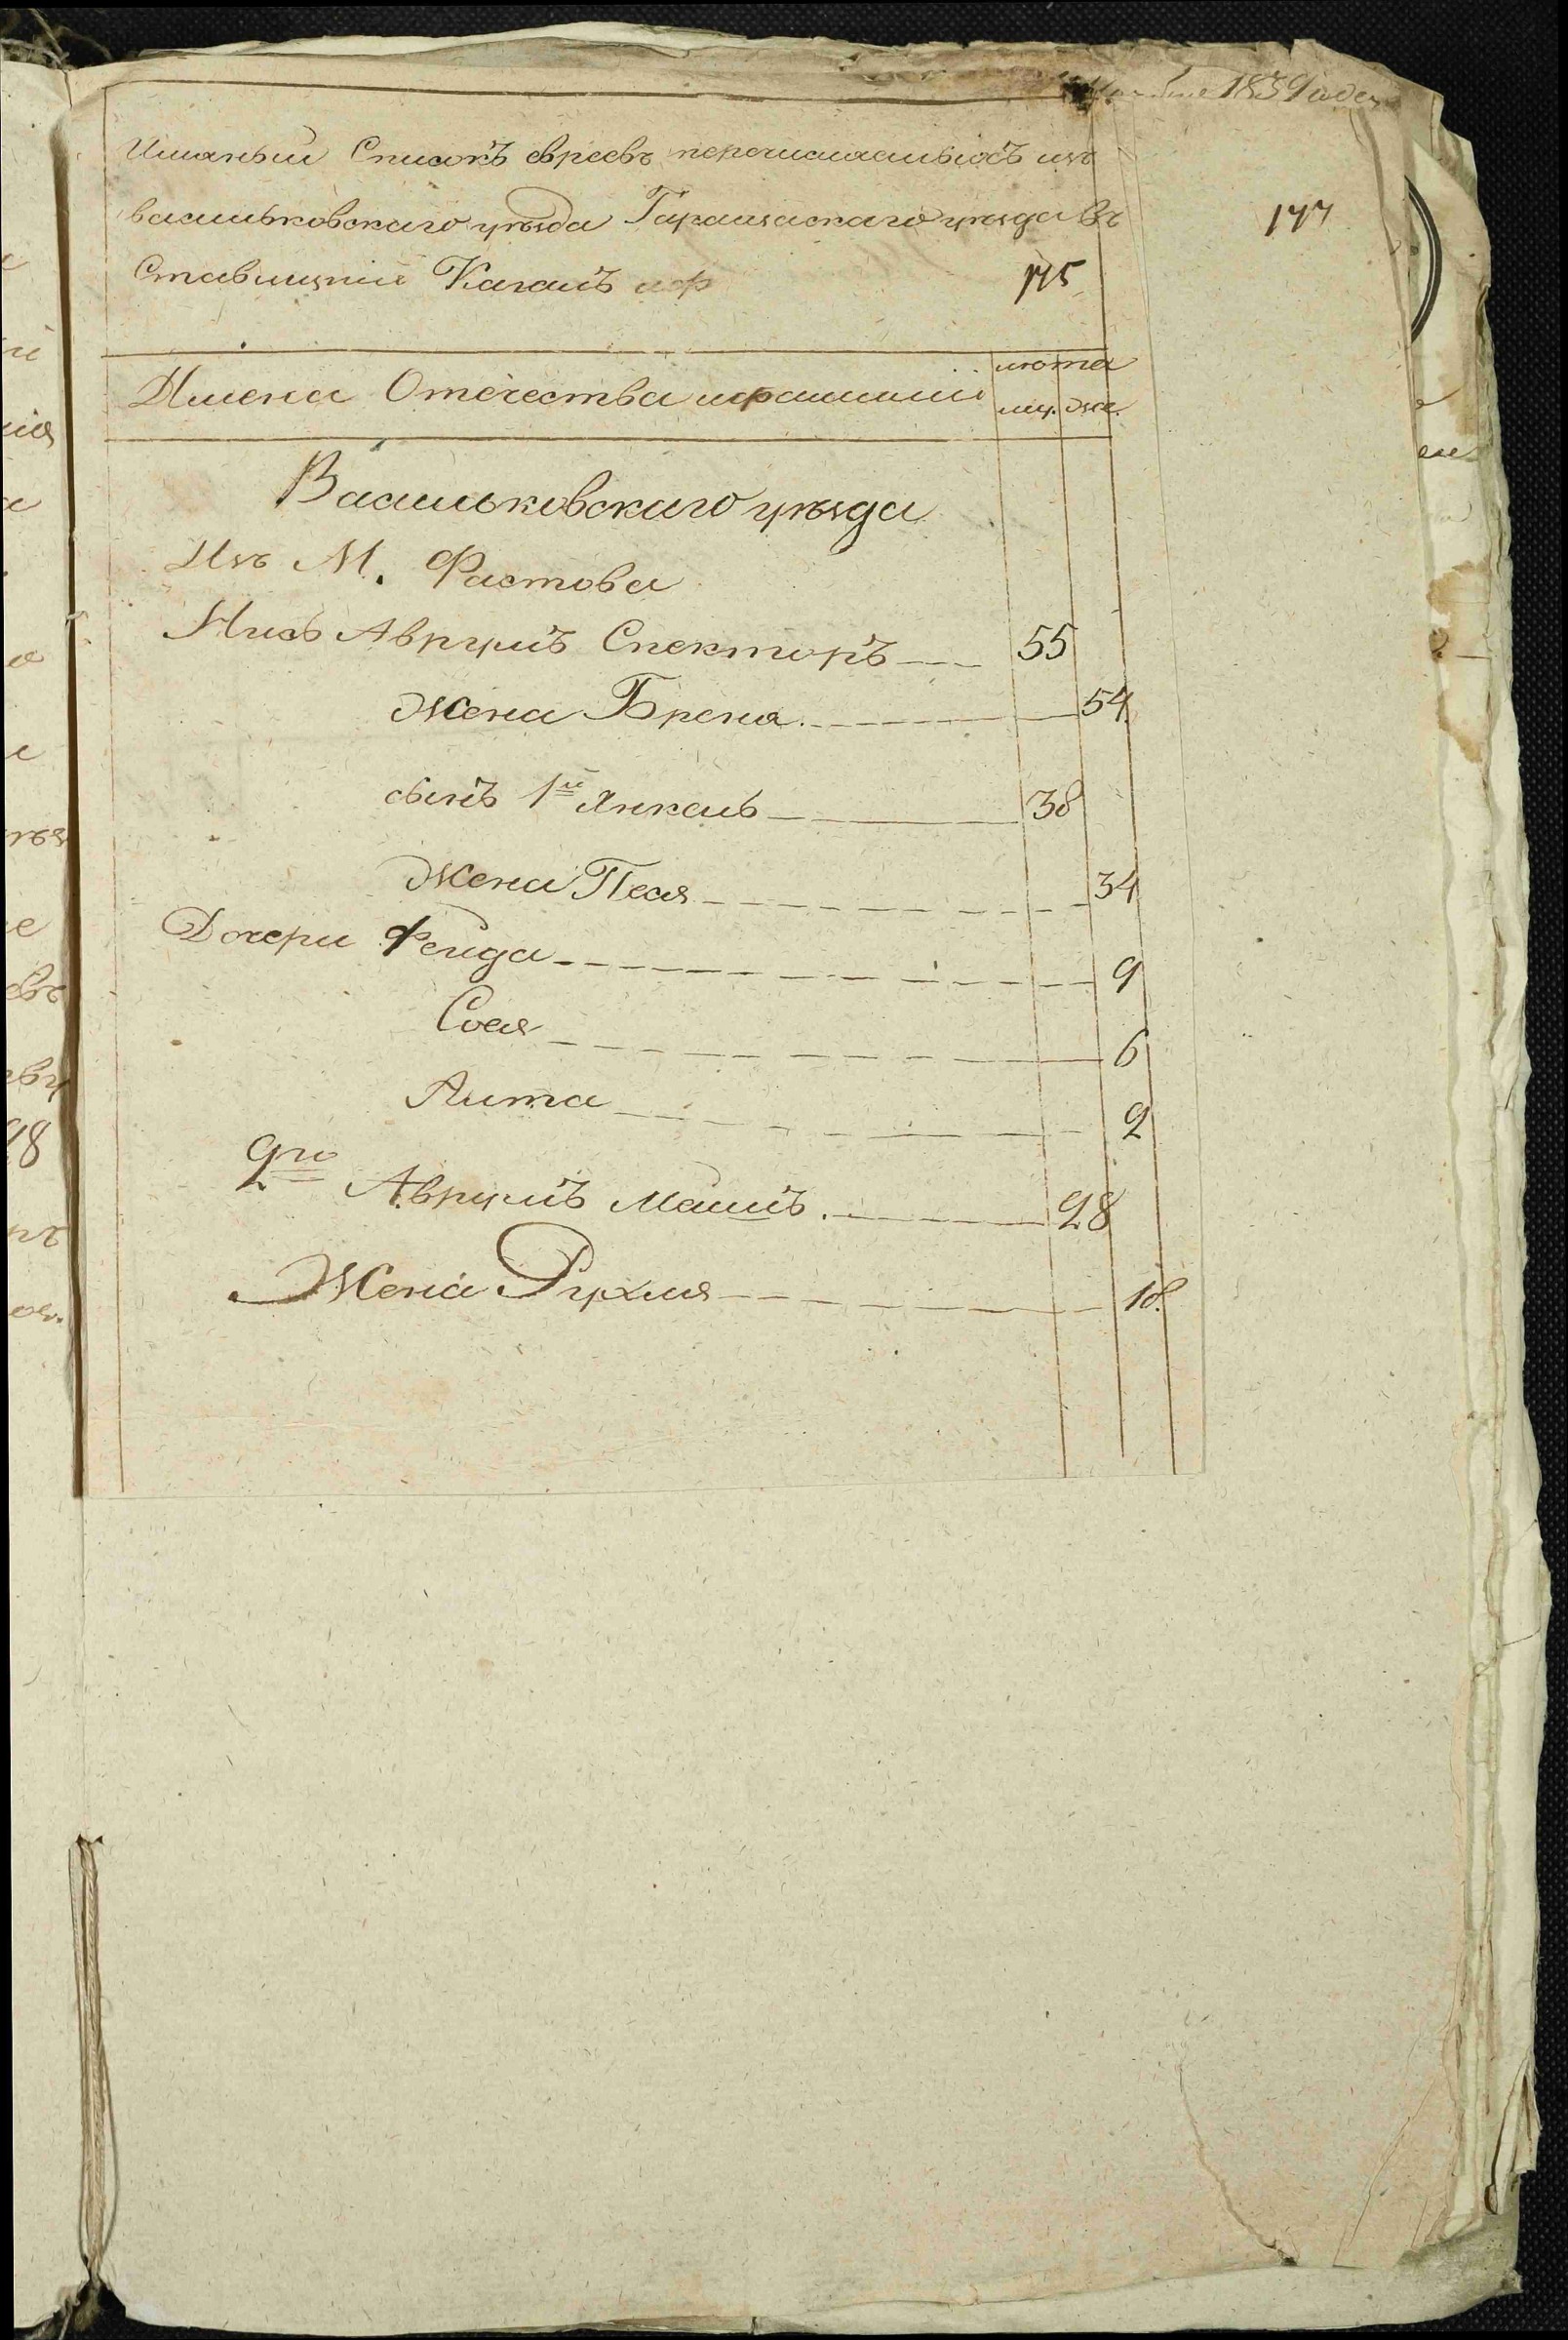 1839 года
177
Имяный Списокъ евреевъ перечисляемыхъ изъ
васильковскаго уѣзда Таращаскаго уѣзда въ
Ставищкій Кагалъ 175
Имена Отечества ифамилии
лѣта
му. же.
Васильковскаго уѣзда
Изъ М. Фастова
Нисъ Аврумъ Спекторъ 55
Жена Брена 54
сынъ 1й Янкель 38
Жена Песя 34
Дочери Фейда 9
Сося 6
Лита 2
2го Аврумъ Машъ 28
Жена Рухля 18